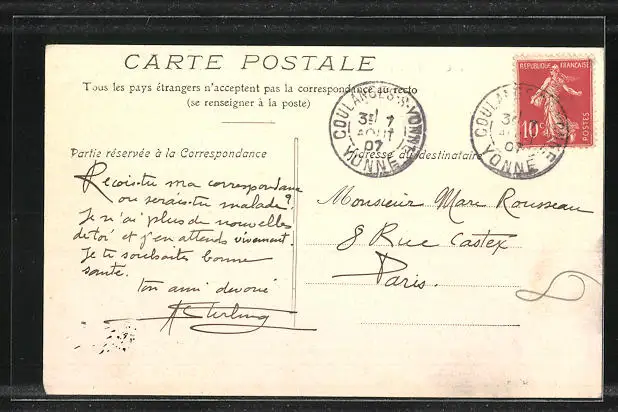 CARTE POSTALE
Tous les pays étrangers n'acceptent pas la correspondance au recto
(se renseigner à la poste)
RÉPUBLIQUE FRANÇAISE
10c
POSTES
COULANGES-S-YONNE
3E 7
AOUT
07
YONNE
COULANGES
3E
07
YONNE
Partie réservée à la Correspondance
Adresse du destinataire
Reçois-tu ma correspondance
ou serais-tu malade?
Je n'ai plus de nouvelles
de toi et j'en attends vivement.
Je te souhaites bonne
sante.
Ton ami devoué
Monsieur Marc Rousseau
8 Rue Castex
Paris.